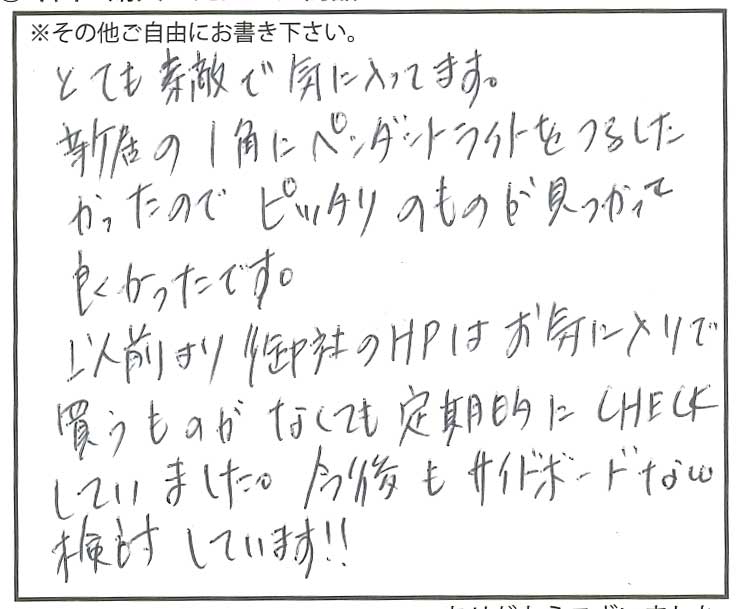 ※その他ご自由にお書き下さい。
とても素敵で気に入ってます。
新居の1角にペンダントライトをつるした
かったのでピッタリのものが見つかって
良くかったです。
以前より御社のHPはお気に入りで
買うものがなくても定期的にCHECK
していました。今後もサイドボードなど
検討しています!!